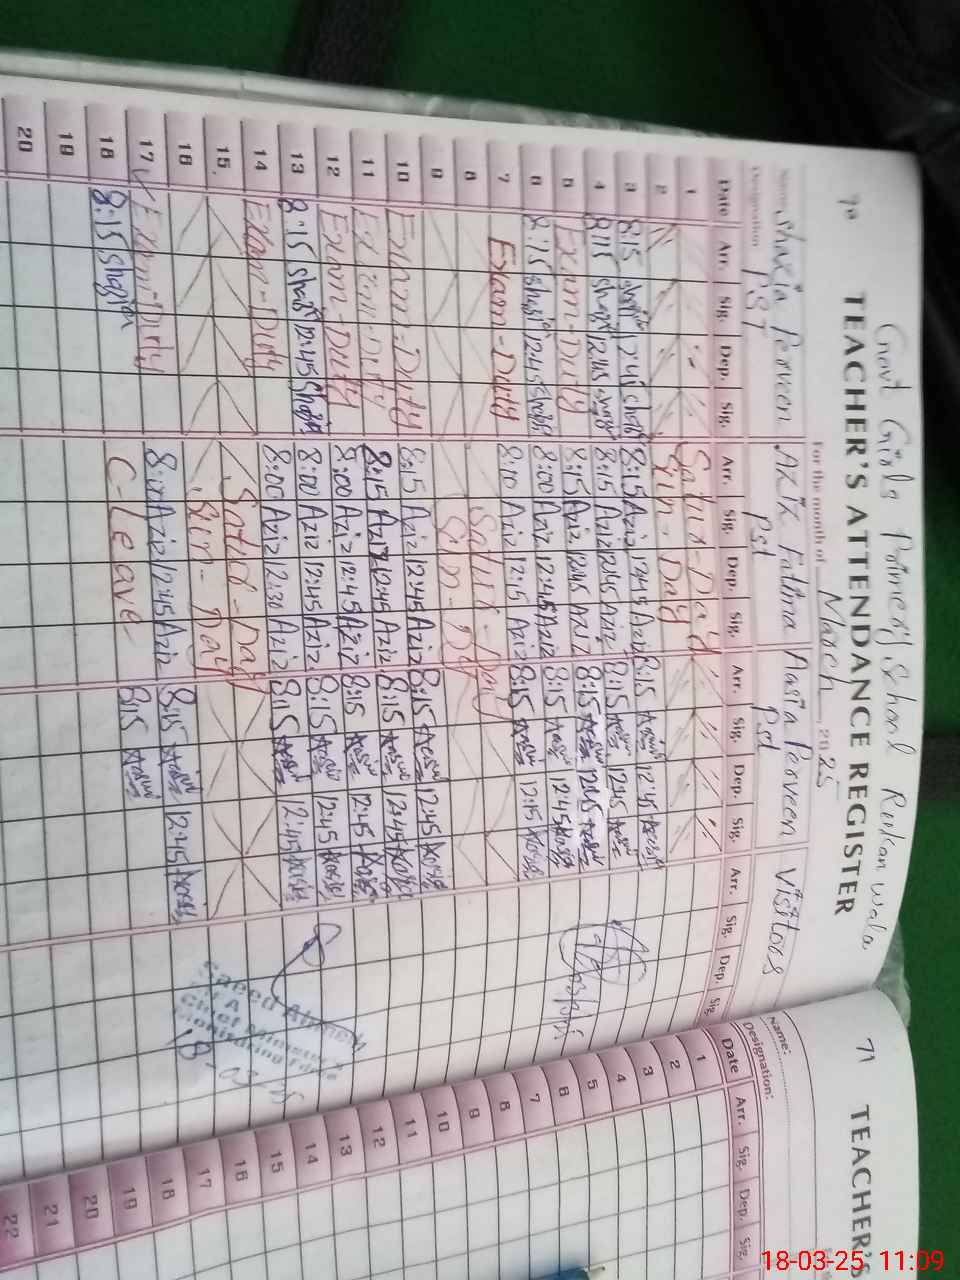 70
Govt Girls Primery School Rukan wala
TEACHER'S ATTENDANCE REGISTER
For the month of March, 2025
Name Shazia Perveen Aziz Fatima Aasia Perveen Visitors
Designation PST Pst Pst
Date Arr. Sig. Dep. Sig. Arr. Sig. Dep. Sig. Arr. Sig. Dep. Sig. Arr. Sig. Dep. Sig.
1 Satur-Day
2 Sun-Day
3 8:15 12:45 8:15 Aziz 12:45 Aziz 8:15 12:45
4 8:15 12:45 8:15 Aziz 12:45 Aziz 8:15 12:45
5 Exam-Duty 8:15 Aziz 12:45 Aziz 8:15 12:45
6 8:15 12:45 8:00 Aziz 12:45 Aziz 8:15 12:45
7 Exam-Duty 8:10 Aziz 12:15 Aziz 8:15 12:15
8 Satur-Day
9 Sun-Day
10 Exam-Duty 8:15 Aziz 12:45 Aziz 8:15 12:45
11 Exam-Duty 8:15 Aziz 12:45 Aziz 8:15 12:45
12 Exam-Duty 8:00 Aziz 12:45 Aziz 8:15 12:45
13 8:15 12:45 8:00 Aziz 12:45 Aziz 8:15 12:45
14 Exam-Duty 8:00 Aziz 12:30 Aziz 8:15 12:45
15 Satur-Day
16 Sun-Day
17 Exam-Duty Aziz 12:45 Aziz 8:15 12:45
18 8:15 C-leave 8:15
19
20
Saeed Ahmed
Chief Minister's
Monitoring Force
71
TEACHER'S
Name:
Designation:
Date Arr. Sig. Dep. Sig.
1
2
3
4
5
6
7
8
9
10
11
12
13
14
15
16
17
18
19
20
21
22
18-03-25 11:09